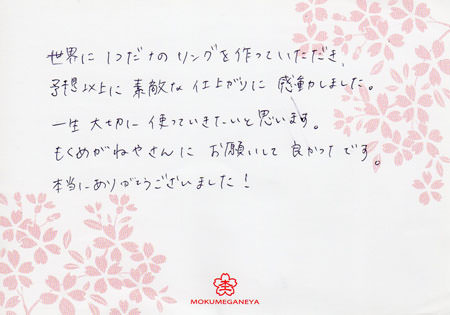 世界に1つだけのリングを作っていただき、
予想以上に素敵な仕上がりに感動しました。
一生大切に使っていきたいと思います。
もくめがねやさんにお願いして良かったです。
本当にありがとうございました!
MOKUMEGANEYA